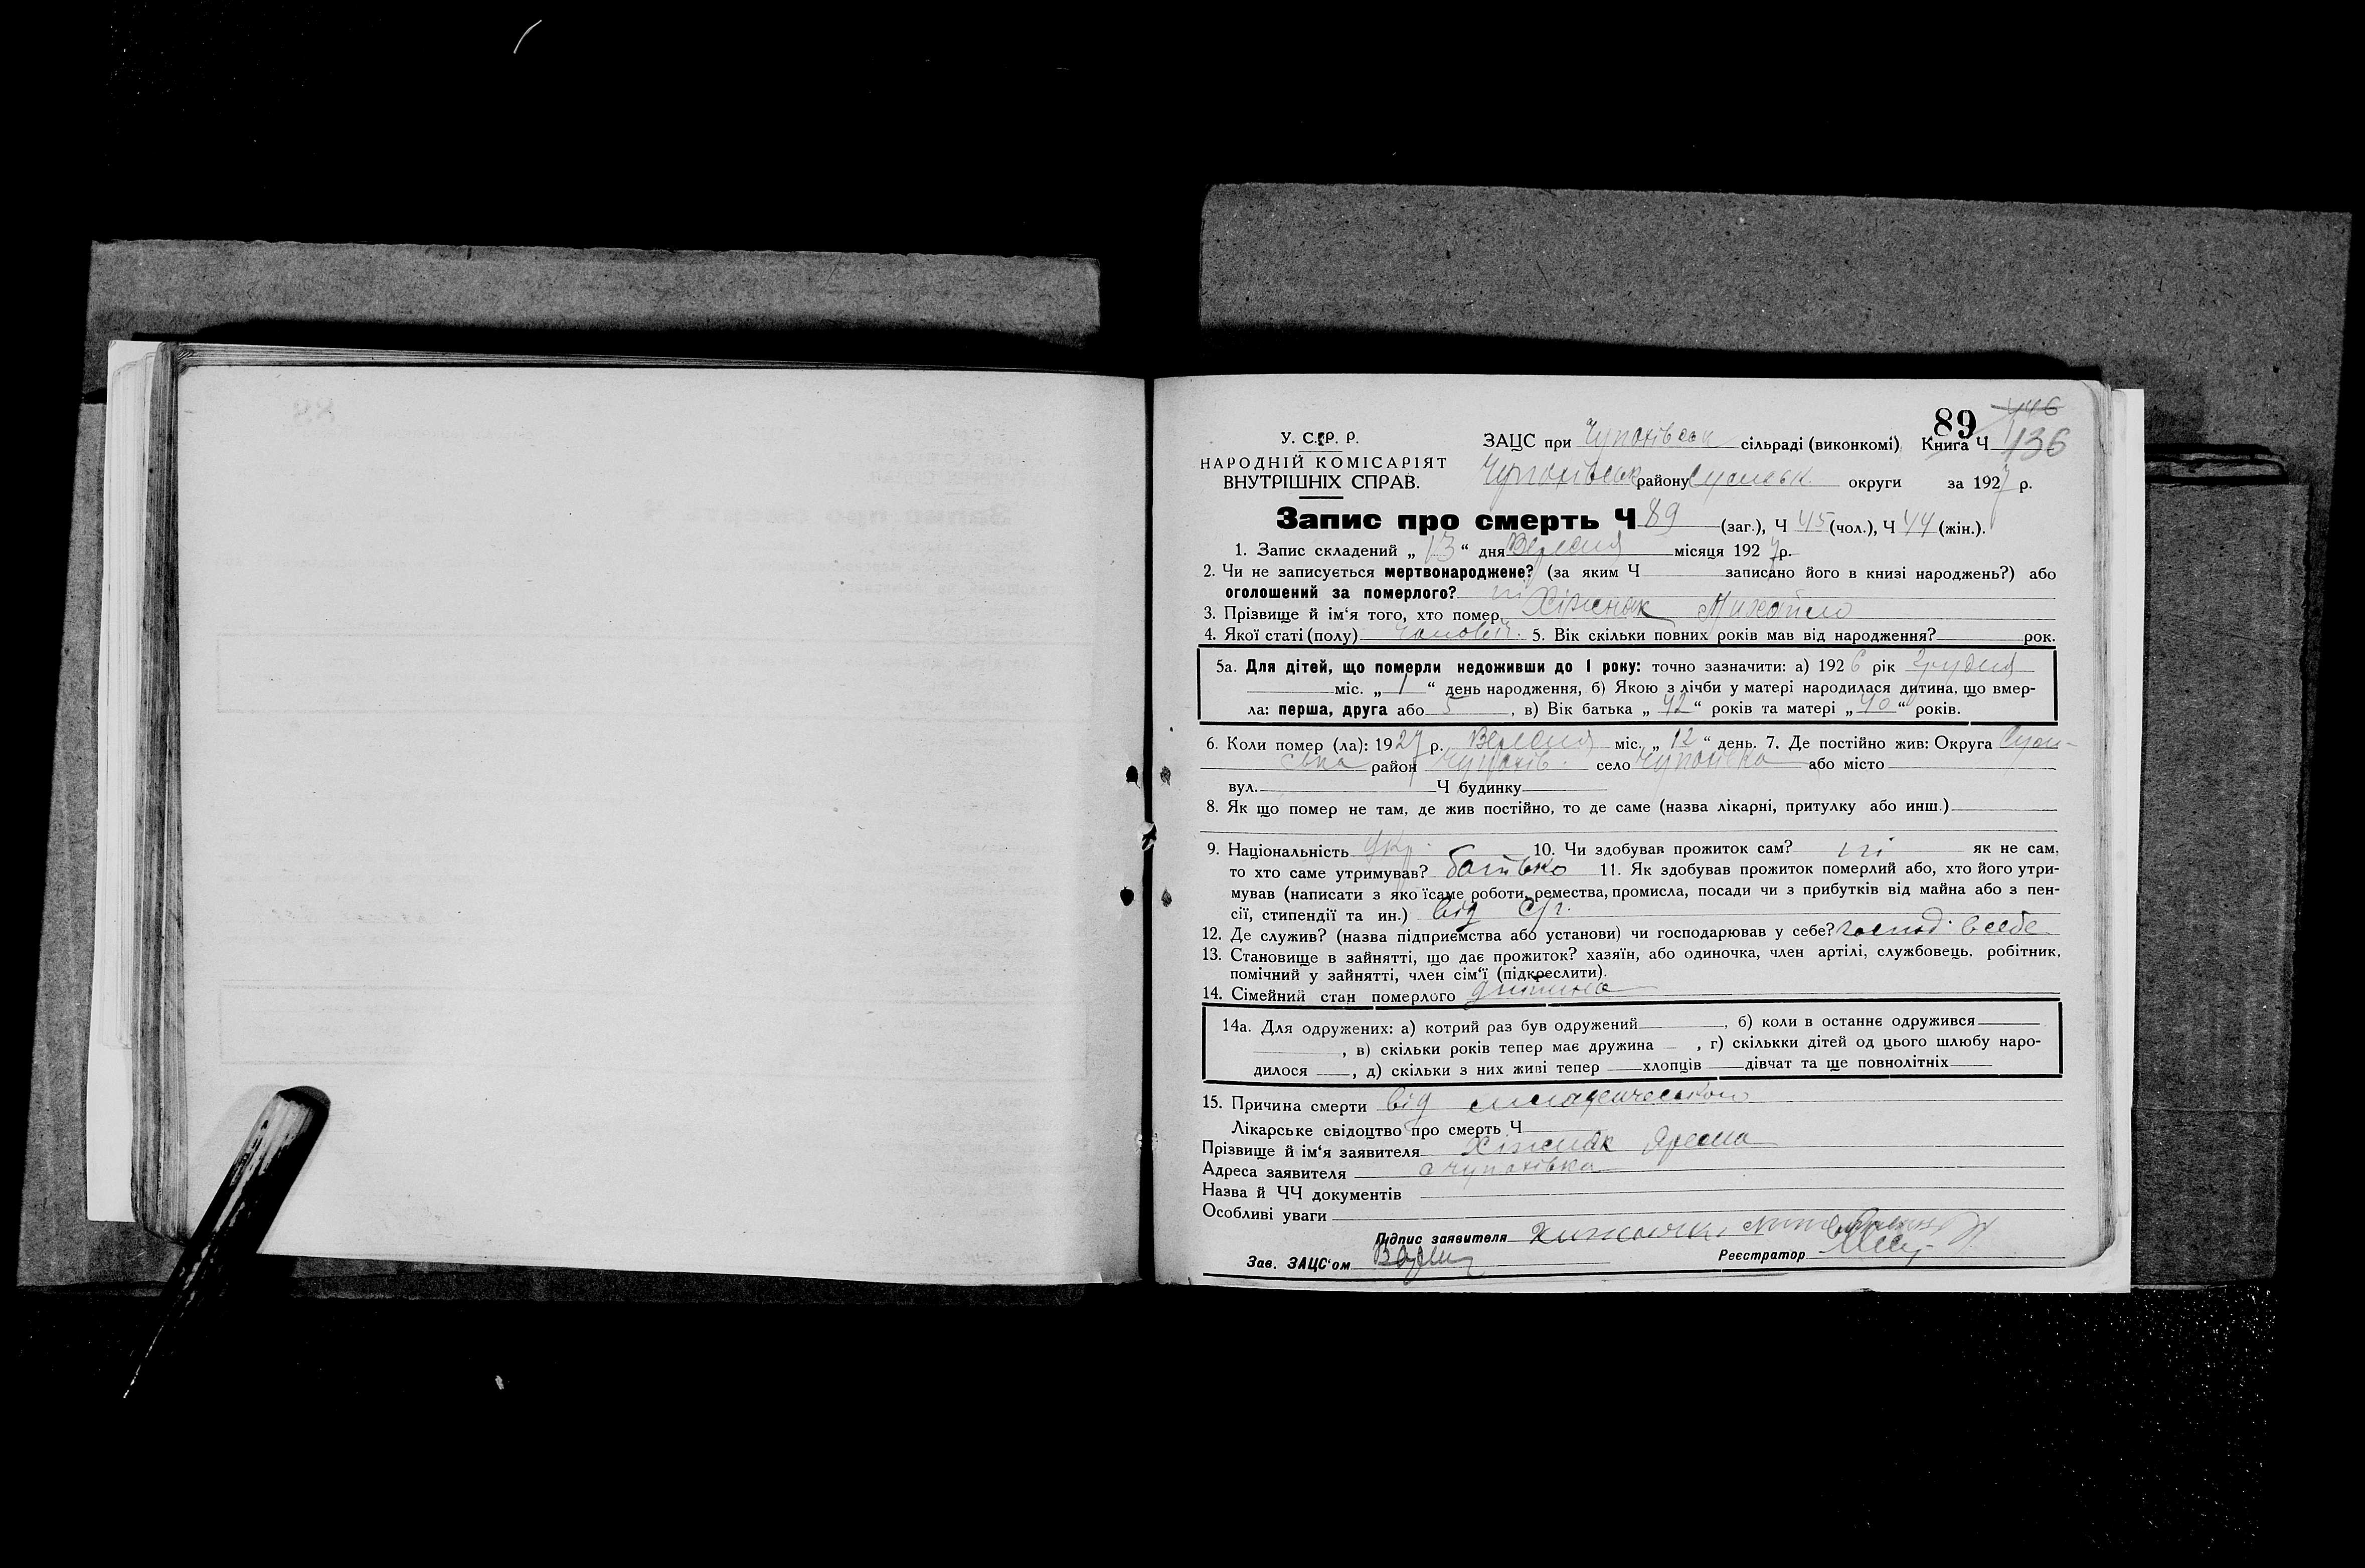 89 446
У. С. Р. Р. ЗАЦС при Чупахівськ сільраді (виконкомі) Книга Ч 136
НАРОДНІЙ КОМІСАРІЯТ
ВНУТРІШНІХ СПРАВ. Чупахівськ району Сумськ округи за 1927 р.
Запис про смерть Ч 89 (заг.), Ч 45 (чол.), Ч 44 (жін.).
1. Запис складений „ 13 “ дня Вересня місяця 1927 р.
2. Чи не записується мертвонароджене? (за яким Ч записано його в книзі народжень?) або
оголошений за померлого? ні
3. Прізвище й ім‘я того, хто помер Хіжняк Михайло
4. Якої статі (полу) чоловіч. 5. Вік скільки повних років мав від народження? рок.
5а. Для дітей, що померли недоживши до 1 року: точно зазначити: а) 1926 рік Грудня
міс. „ 1 “ день народження, б) Якою з лічби у матері народилася дитина, що вмер-
ла: перша, друга або 5 , в) Вік батька „ 42 “ років та матері „ 40 “ років.
6. Коли помер (ла): 1927 р. Вересня міс. „ 12 “ день. 7. Де постійно жив: Округа Сум-
ська район Чупахів. село Чупахівка або місто
вул. Ч будинку
8. Як що помер не там, де жив постійно, то де саме (назва лікарні, притулку або инш.)
9. Національність Укр. 10. Чи здобував прожиток сам? ні як не сам,
то хто саме утримував? батько 11. Як здобував прожиток померлий або, хто його утри-
мував (написати з якоїсаме роботи, ремества, промисла, посади чи з прибутків від майна або з пен-
сії, стипендії та ин.) від с/г.
12. Де служив? (назва підприємства або установи) чи господарював у себе? господ. в себе
13. Становище в зайнятті, що дає прожиток? хазяїн, або одиночка, член артілі, службовець, робітник,
помічний у зайнятті, член сім‘ї (підкреслити).
14. Сімейний стан померлого дитина
14а. Для одружених: а) котрий раз був одружений , б) коли в останнє одружився
, в) скільки років тепер має дружина , г) скількки дітей од цього шлюбу наро-
дилося , д) скільки з них живі тепер хлопців дівчат та ще повнолітніх
15. Причина смерти від младенческого
Лікарське свідоцтво про смерть Ч
Прізвище й ім‘я заявителя Хіжняк
Адреса заявителя с Чупахівка
Назва й ЧЧ документів
Особливі уваги
Підпис заявителя
Зав. ЗАЦС‘ом Реєстратор